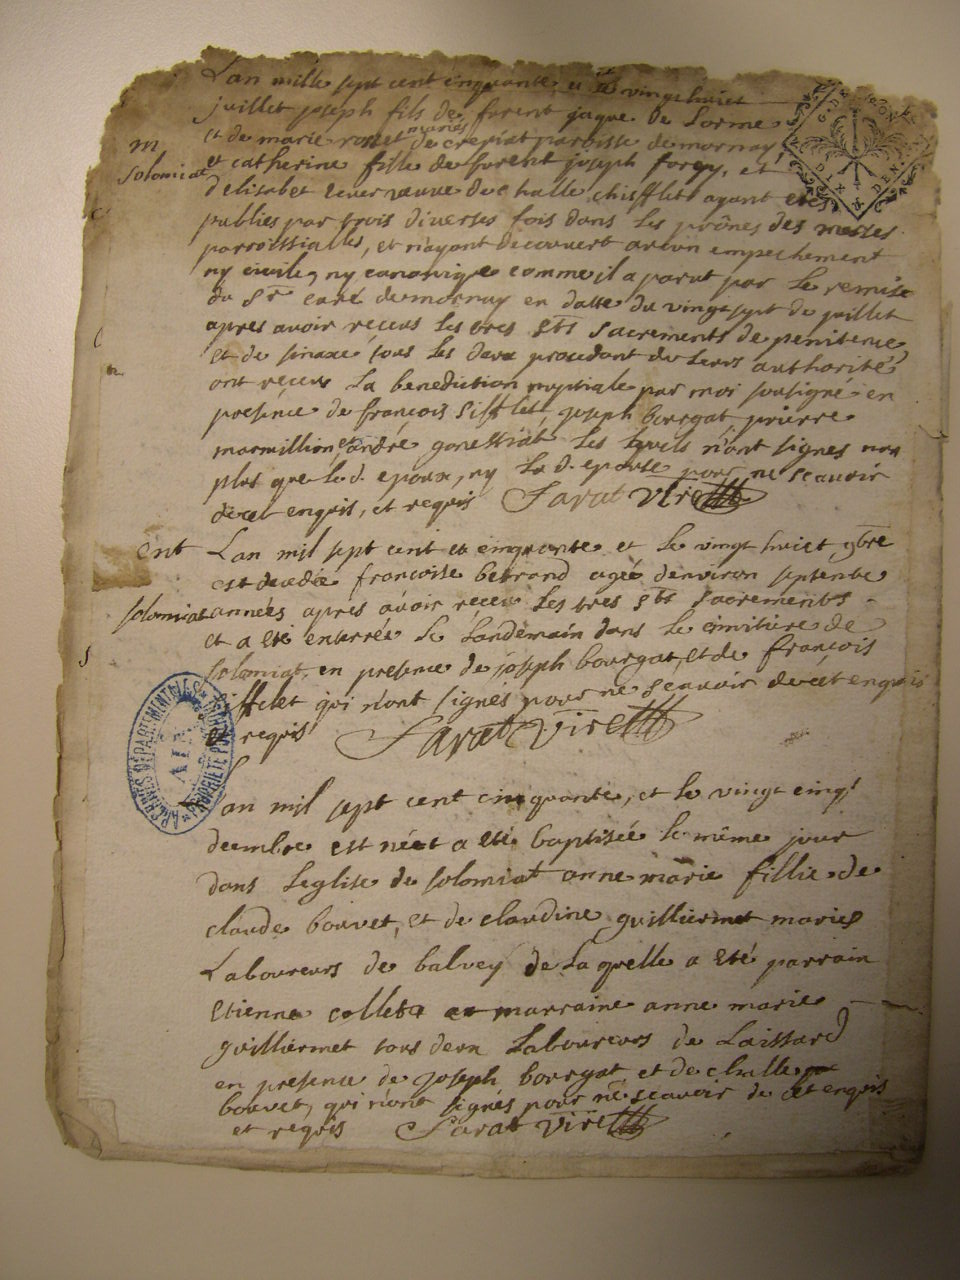 Lan mille sept cent cinquante et le vingt huict
juillet joseph fils de forent jaque de Lorme
m
et de marie ronet mariés de crepiat paroisse de mornay
solomiat
et catherine fille de forent joseph forey, et
d'elisabet veuve de challe chifflet ayant etes
publies par trois diverses fois dans les prônes des messes
parroissialles, et n'ayant decouvert aucun empechement
ny civile, ny canonique comme il a parut par le remise
du Sr curé de mornay en datte du vingt sept de juillet
apres avoir receus les tres sts sacrements de penitence
et de sinaxe tous les deux procedant de leurs authorité
ont receus la benediction nuptiale par moi soussigné en
presence de françois sifflet, joseph bourgat, prierre
marmillion et andré gonessiat les lquels n'ont signes non
plus que le d. epoux, ny la d. epouse pour ne sçavoir
de cet enquis, et requis Sarat vire
ent
Lan mil sept cent et cinquante et le vingt huict 9bre
est decedée françoise betrand agée denviron septente
solomiat
années aprés avoir receu les tres sts sacrements
et a eté enterrée le landemain dans le cimitiere de
solomiat, en presence de joseph bourgat, et de françois
sifflet qui n'ont signes pour ne sçavoir de cet enquis
et requis Sarat vire
Lan mil sept cent cinquante, et le vingt cinq
decembre est née et a eté baptisée le même jour
dans Leglise de solomiat anne marie fillie de
claude bouvet, et de claudine guilliermet mariés
Laboureurs de balvey de la quelle a eté parrain
Etienne collet et marraine anne marie
guilliermet tous deux Laboureurs de Laissard
en presence de joseph bourgat et de challe
bouvet, qui n'ont signés pour ne sçavoir de cet enquis
et requis Sarat vire
G. DE
DIX DEN
ARCHIVES DÉPARTEMENTALES
AIN
PROPRIÉTÉ PUBLIQUE